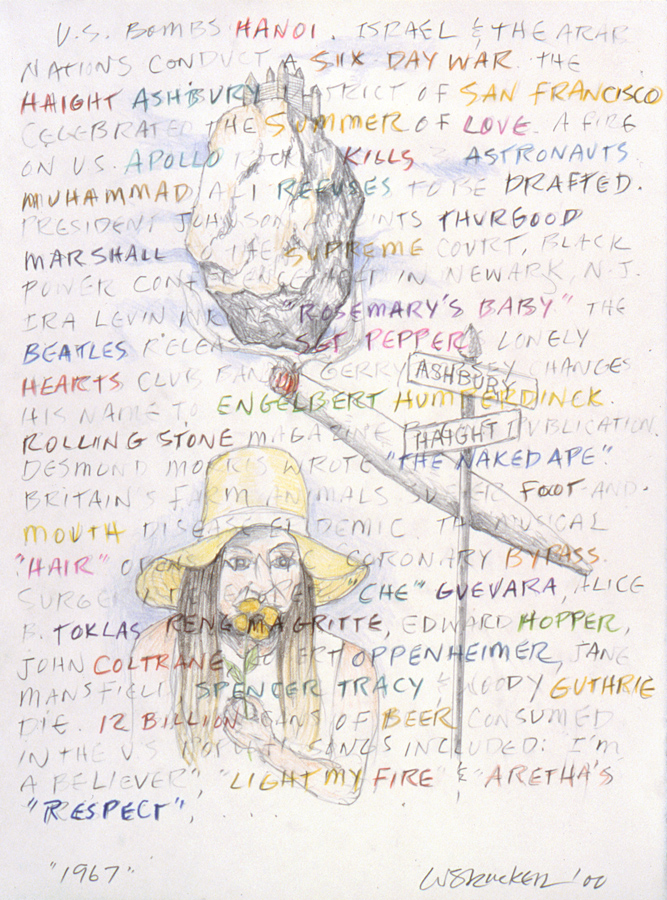 U.S. BOMBS HANOI. ISRAEL & THE ARAB
NATIONS CONDUCT A SIX DAY WAR. THE
HAIGHT ASHBURY DISTRICT OF SAN FRANCISCO
CELEBRATED THE SUMMER OF LOVE. A FIRE
ON U.S. APOLLO KILLS 3 ASTRONAUTS.
MUHAMMAD ALI REFUSES TO BE DRAFTED.
PRESIDENT JOHNSON THURGOOD
MARSHALL TO THE SUPREME COURT, BLACK
POWER CONFERENCE HELD IN NEWARK, N.J.
IRA LEVIN WROTE "ROSEMARY'S BABY." THE
BEATLES SGT PEPPERS LONELY
HEARTS CLUB BAND GERRY CHANGES
HIS NAME TO ENGELBERT HUMPERDINCK.
ROLLING STONE MAGAZINE PUBLICATION.
DESMOND MORRIS WROTE "THE NAKED APE".
BRITAIN'S FARM ANIMALS SUFFER FOOT-AND-
MOUTH DISEASE EPIDEMIC. THE MUSICAL
"HAIR" OPENS CORONARY BYPASS
"CHE" GUEVARA, ALICE
B. TOKLAS RENE MAGRITTE, EDWARD HOPPER,
JOHN COLTRANE OPPENHEIMER, JANE
MANSFIELD, SPENCER TRACY & WOODY GUTHRIE
DIE. 12 BILLION CANS OF BEER CONSUMED
IN THE U.S. SONGS INCLUDED: "I'M
A BELIEVER", "LIGHT MY FIRE" & "ARETHA'S
"RESPECT", . . . .
ASHBURY
HAIGHT
"1967"
WSTRUCKEN '00